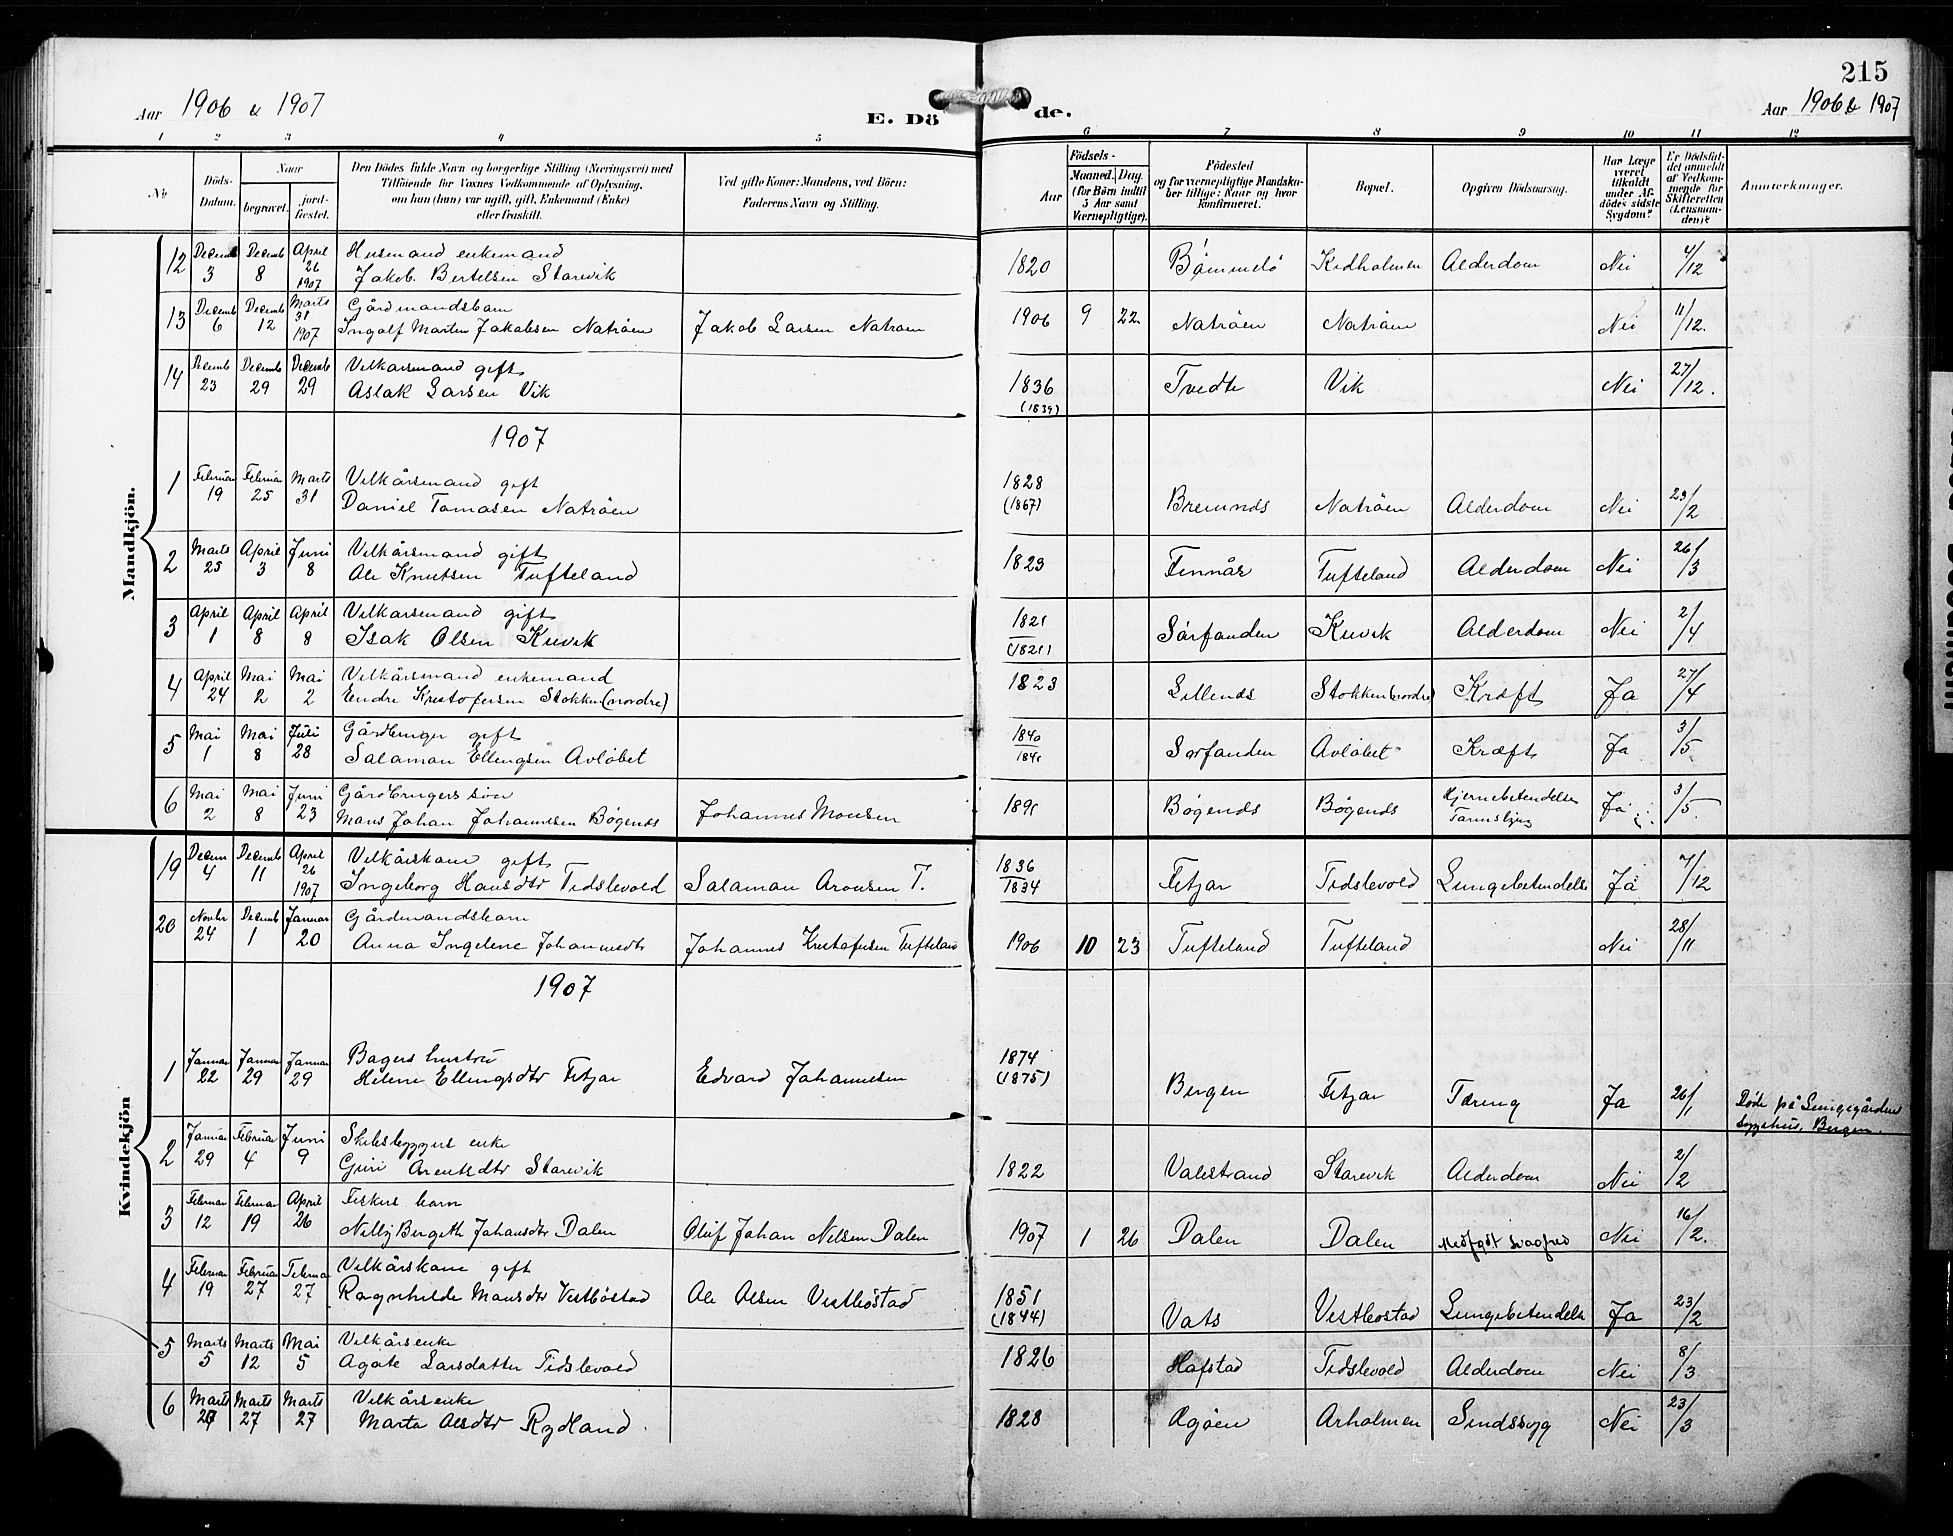 215
Aar 1906 & 1907 E. Döde. Aar 1906 & 1907
1 2 3 4 5 6 7 8 9 10 11 12
No
Döds-Datum.
Naar
begravet.
jordfæstet.
Den Dödes fulde Navn og borgerlige Stilling (Næringsvei) med
Tilföiende for Voxnes Vedkommende af Oplysning,
om han (hun) var ugift, gift, Enkemand (Enke)
eller fraskilt.
Ved gifte Koner: Mandens, ved Börn:
Faderens Navn og Stilling.
Födsels-
Aar
Maaned. Dag.
(for Börn indtil
5 Aar samt
Værnepligtige).
Födested
og for værnepligtige Mandskaber tillige: Naar og hvor
konfirmeret.
Bopæl.
Opgiven Dödsaarsag.
Har Læge
været
tilkaldt
under Afdödes sidste
Sygdom?
Er Dödsfaldet anmeldt
af Vedkommende for
Skifteretten
(Lensmanden)?
Anmærkninger.
Mandkjön.
12 Decemb 3 Decemb 8 April 26 1907 Husmand enkemand
Jakob Bertelsen Starevik 1820 Bömmelö Kidholmen Alderdom Nei 4/12
13 Decemb 6 Decemb 12 Marts 31 1907 Gårdmandsbarn
Ingolf Martin Jakobsen Natröen Jakob Larsen Natröen 1906 9 22 Natröen Natröen Nei 11/12.
14 Decemb 23 Decemb 29 Decemb 29 Velkårsmand gift
Aslak Larsen Vik 1836 (1839) Tvedte Vik Nei 27/12.
1907
1 Februar 19 Februar 25 Marts 31 Velkårsmand gift
Daniel Tomasen Natröen 1828 (1867) Bremnds Natröen Alderdom Nei 23/2
2 Marts 25 April 3 Juni 8 Velkårsmand gift
Ole Knutsen Tufteland 1823 Finnås Tufteland Alderdom Nei 26/3
3 April 1 April 8 April 8 Velkårsmand gift
Isak Olsen Kuvik 1821 (1821) Sörfonden Kuvik Alderdom Nei 2/4
4 April 24 Mai 2 Mai 2 Velkårsmand enkemand
Endre Kristofersen Stokken (nordre) 1823 Lillends Stokken (nordre) Kræft Ja 27/4
5 Mai 1 Mai 8 Juli 28 Gårdbruger gift
Salamon Ellingsen Avlöbet 1840 1841 Sorfonden Avlöbet Kræft Ja 3/5
6 Mai 2 Mai 8 Juni 23 Gårdbrugers sön
Mons Johan Johannesen Bögends Johannes Monsen 1891 Bögends Bögends Hjernebetendelse Ja 3/5.
Kvindekjön
19 Decem 4 Decemb 11 April 26 1907 Velkårskone gift
Ingeborg Hansdtr Tidslevold Salamon Aronsen T. 1836 1834 Fitjar Tidslevold Lungebetendelse Ja 7/12
20 Novbr 24 Decemb 1 Januar 20 Gårdmandsbarn
Anna Ingelene Johannesdtr Johannes Kristofersen Tufteland 1906 10 23 Tufteland Tufteland Nei 28/11
1907
1 Januar 22 Januar 29 Januar 29 Bagers hustru
Helene Ellingsdtr Fitjar Edvard Johannesen 1874 (1875) Bergen Fitjar Tæring Ja 26/1 Döde på Lungegårdens
sygehus, Bergen.
2 Januar 29 Februar 4 Juni 9 Skibsbyggers enke
Guri Arentsdtr Starevik 1822 Valestrand Starevik Alderdom Nei 2/2
3 Februar 12 Februar 19 April 26 Fiskers barn
Nelly Bergith Johansdtr Dalen Oluf Johan Nelsen Dalen 1907 1 26 Dalen Dalen Medfödt svaghed Nei 16/2.
4 Februar 19 Februar 27 Februar 27 Velkårskone gift
Ragnhilde Monsdtr Vestböstad Ole Olsen Vestböstad 1851 (1844) Vats Vestbostad Lungebetendelse Ja 23/2
5 Marts 5 Marts 12 Mai 5 Velkårsenke
Agate Larsdatter Tidslevold 1826 Hafstad Tidslevold Alderdom Nei 8/3
6 Marts Marts 27 Marts 27 Velkårsenke
Marta Olsdtr Rydland 1828 Ogöen Arholmen Sindssyg Nei 23/3